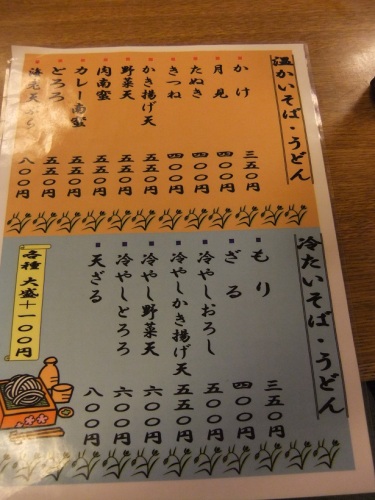 温かいそば・うどん
かけ 三五〇円
月見 四〇〇円
たぬき 四〇〇円
きつね 四〇〇円
かき揚げ天 五五〇円
野菜天 五五〇円
肉南蛮 五五〇円
カレー南蛮 五五〇円
とろろ 五五〇円
海老天 八〇〇円
冷たいそば・うどん
もり 三五〇円
ざる 四〇〇円
冷やしおろし 五五〇円
冷やしかき揚げ天 五五〇円
冷やし野菜天 六〇〇円
冷やしとろろ 六〇〇円
天ざる 八〇〇円
各種 大盛+一〇〇円